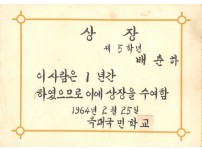 상 장
제 5 학년
배 춘 하
이 사람은 1 년간
하였으므로 이에 상장을 수여함
1964 년 2 월 25 일
국민학교